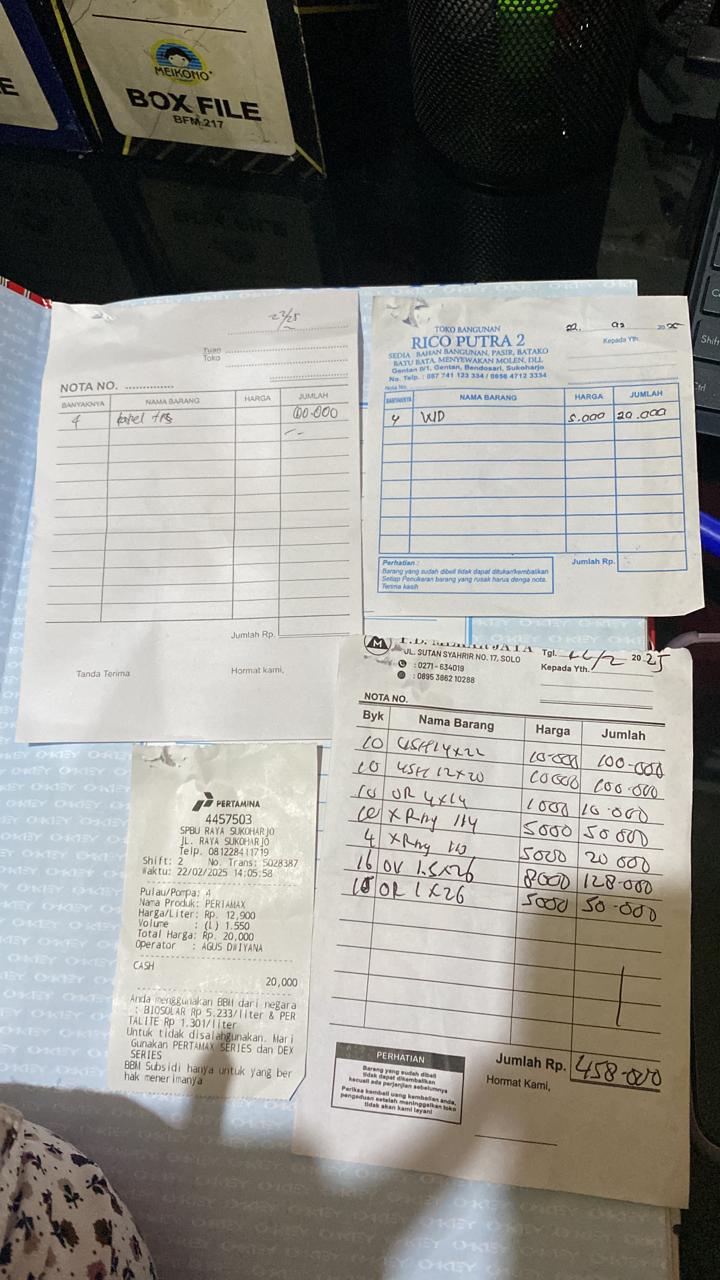 MEIKONO
BOX FILE
BFM 217
E
Shift
Ctrl
22/25
Tuan
Toko
NOTA NO.
BANYAKNYA NAMA BARANG HARGA JUMLAH
4 kabel 100.000
Jumlah Rp.
Tanda Terima Hormat kami,
TOKO BANGUNAN
RICO PUTRA 2
SEDIA BAHAN BANGUNAN, PASIR, BATAKO
BATU BATA, MENYEWAKAN MOLEN, DLL
Gentan 8/1, Gentan, Bendosari, Sukoharjo
No. Telp. : 087 741 123 334 / 0856 4712 3334
22. 02 2025
Kepada Yth.
Nota No.
BANYAKNYA NAMA BARANG HARGA JUMLAH
4 WD 5.000 20.000
Perhatian :
Barang yang sudah dibeli tidak dapat ditukar/kembalikan
Setiap Penukaran barang yang rusak harus denga nota.
Terima kasih
Jumlah Rp.
M
JAYA
JL. SUTAN SYAHRIR NO. 17, SOLO
: 0271 - 634019
: 0895 3862 10288
Tgl. 22/2 2025
Kepada Yth.
NOTA NO.
Byk Nama Barang Harga Jumlah
10 USH 14x22 10.000 100.000
10 USH 12x20 10000 100.000
10 OR 4x14 1000 10.000
10 X Ring 114 5000 50 000
4 X Ring 110 5000 20 000
16 OV 1.5x26 8000 128.000
10 OR 1x26 5000 50.000
Jumlah Rp. 458.000
PERHATIAN
Barang yang sudah dibeli
tidak dapat dikembalikan
kecuali ada perjanjian sebelumnya
Periksa kembali uang kembalian anda,
pengaduan setelah meninggalkan toko
tidak akan kami layani
Hormat Kami,
PERTAMINA
4457503
SPBU RAYA SUKOHARJO
JL. RAYA SUKOHARJO
Telp. 081228411719
Shift: 2 No. Trans: 5028387
Waktu: 22/02/2025 14:05:58
Pulau/Pompa: 4
Nama Produk: PERTAMAX
Harga/Liter: Rp. 12,900
Volume : (L) 1.550
Total Harga: Rp. 20,000
Operator : AGUS DWIYANA
CASH
20,000
Anda menggunakan BBM dari negara
: BIOSOLAR Rp 5.233/liter & PER
TALITE Rp 1.301/liter
Untuk tidak disalahgunakan. Mari
Gunakan PERTAMAX SERIES dan DEX
SERIES
BBM Subsidi hanya untuk yang ber
hak menerimanya